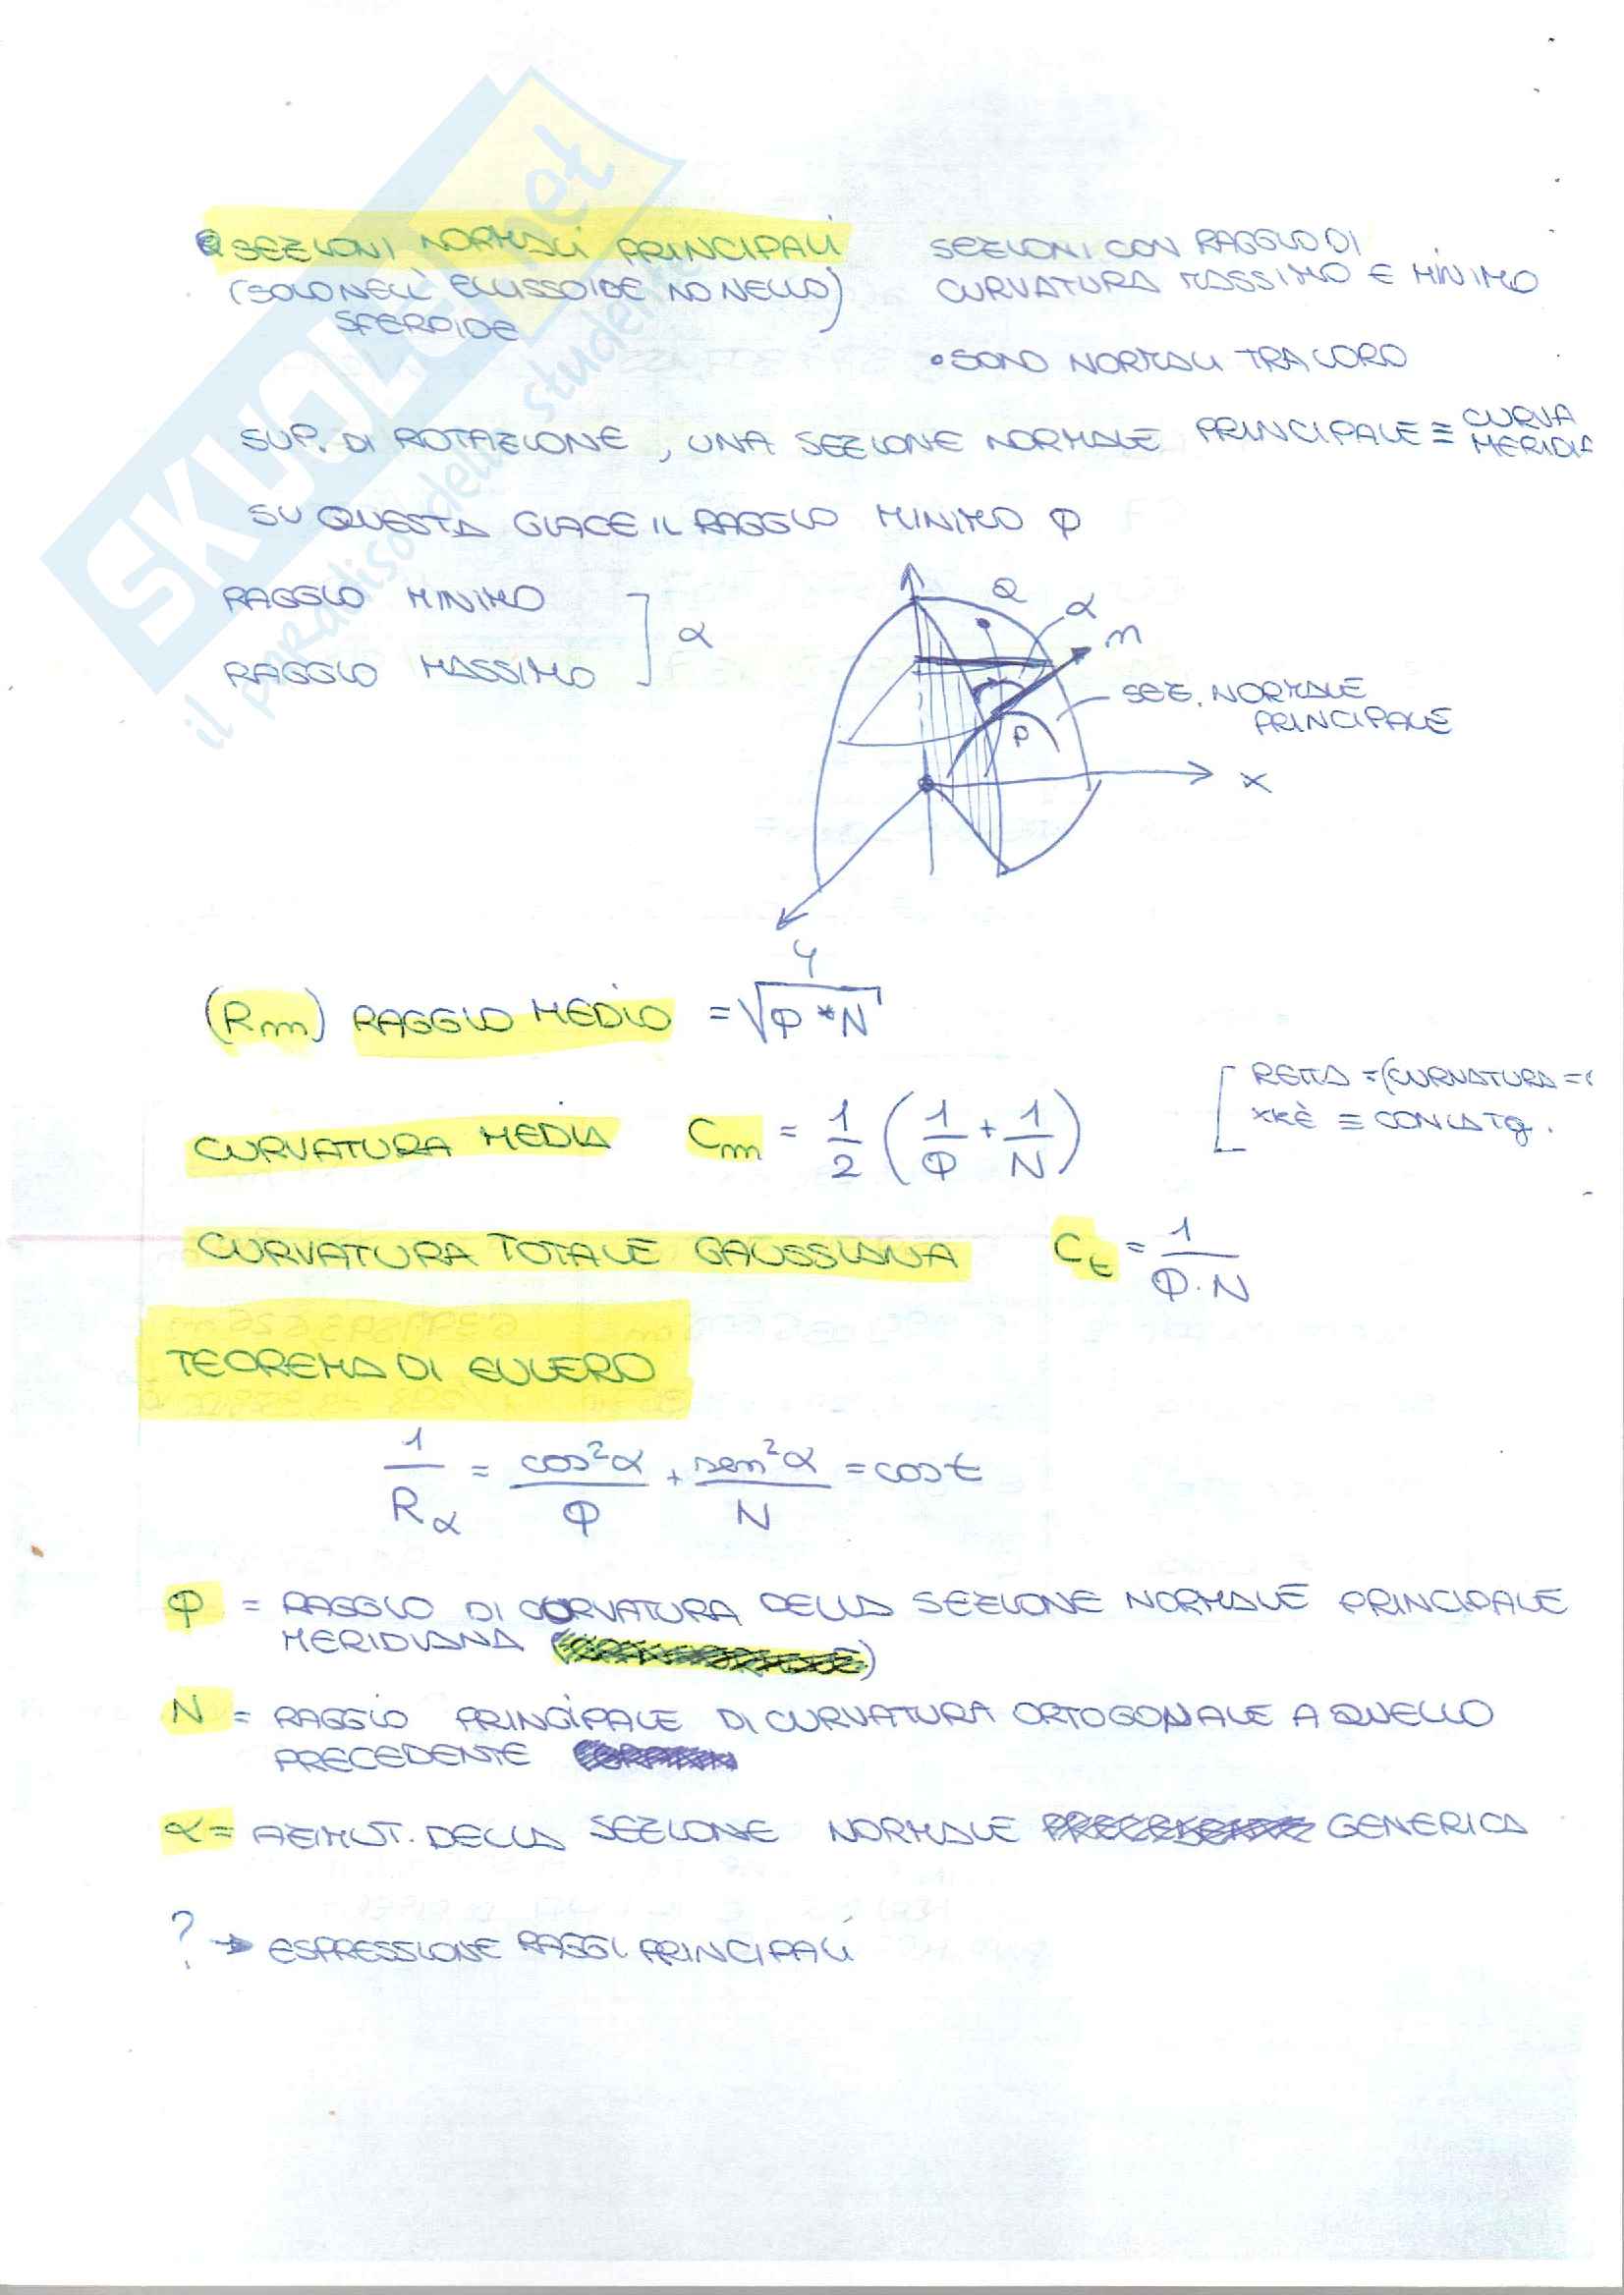 SEZIONI NORMALI PRINCIPALI
(SOLO NELL' ELLISSOIDE NO NELLO)
SFEROIDE
SEZIONI CON RAGGIO DI
CURVATURA MASSIMO E MINIMO
• SONO NORMALI TRA LORO
SUP. DI ROTAZIONE, UNA SEZIONE NORMALE PRINCIPALE ≡ CURVA
MERIDIA
SU QUESTA GIACE IL RAGGIO MINIMO ρ
RAGGIO MINIMO
RAGGIO MASSIMO ] α
Q
α
n
SEZ. NORMALE
PRINCIPALE
P
X
Y
(Rm) RAGGIO MEDIO = √ρ*N
RETTA =(CURVATURA =
xkè ≡ CON LA Tg.
CURVATURA MEDIA Cm = 1/2 (1/ρ + 1/N)
CURVATURA TOTALE GAUSSIANA Ct = 1/ρ·N
TEOREMA DI EULERO
1/Rα = cos²α/ρ + sen²α/N = cost
ρ = RAGGIO DI CURVATURA DELLA SEZIONE NORMALE PRINCIPALE
MERIDIANA
N = RAGGIO PRINCIPALE DI CURVATURA ORTOGONALE A QUELLO
PRECEDENTE
α = AZIMUT. DELLA SEZIONE NORMALE GENERICA
? → ESPRESSIONE RAGGI PRINCIPALI
SKUOLA.net
il paradiso dello studente